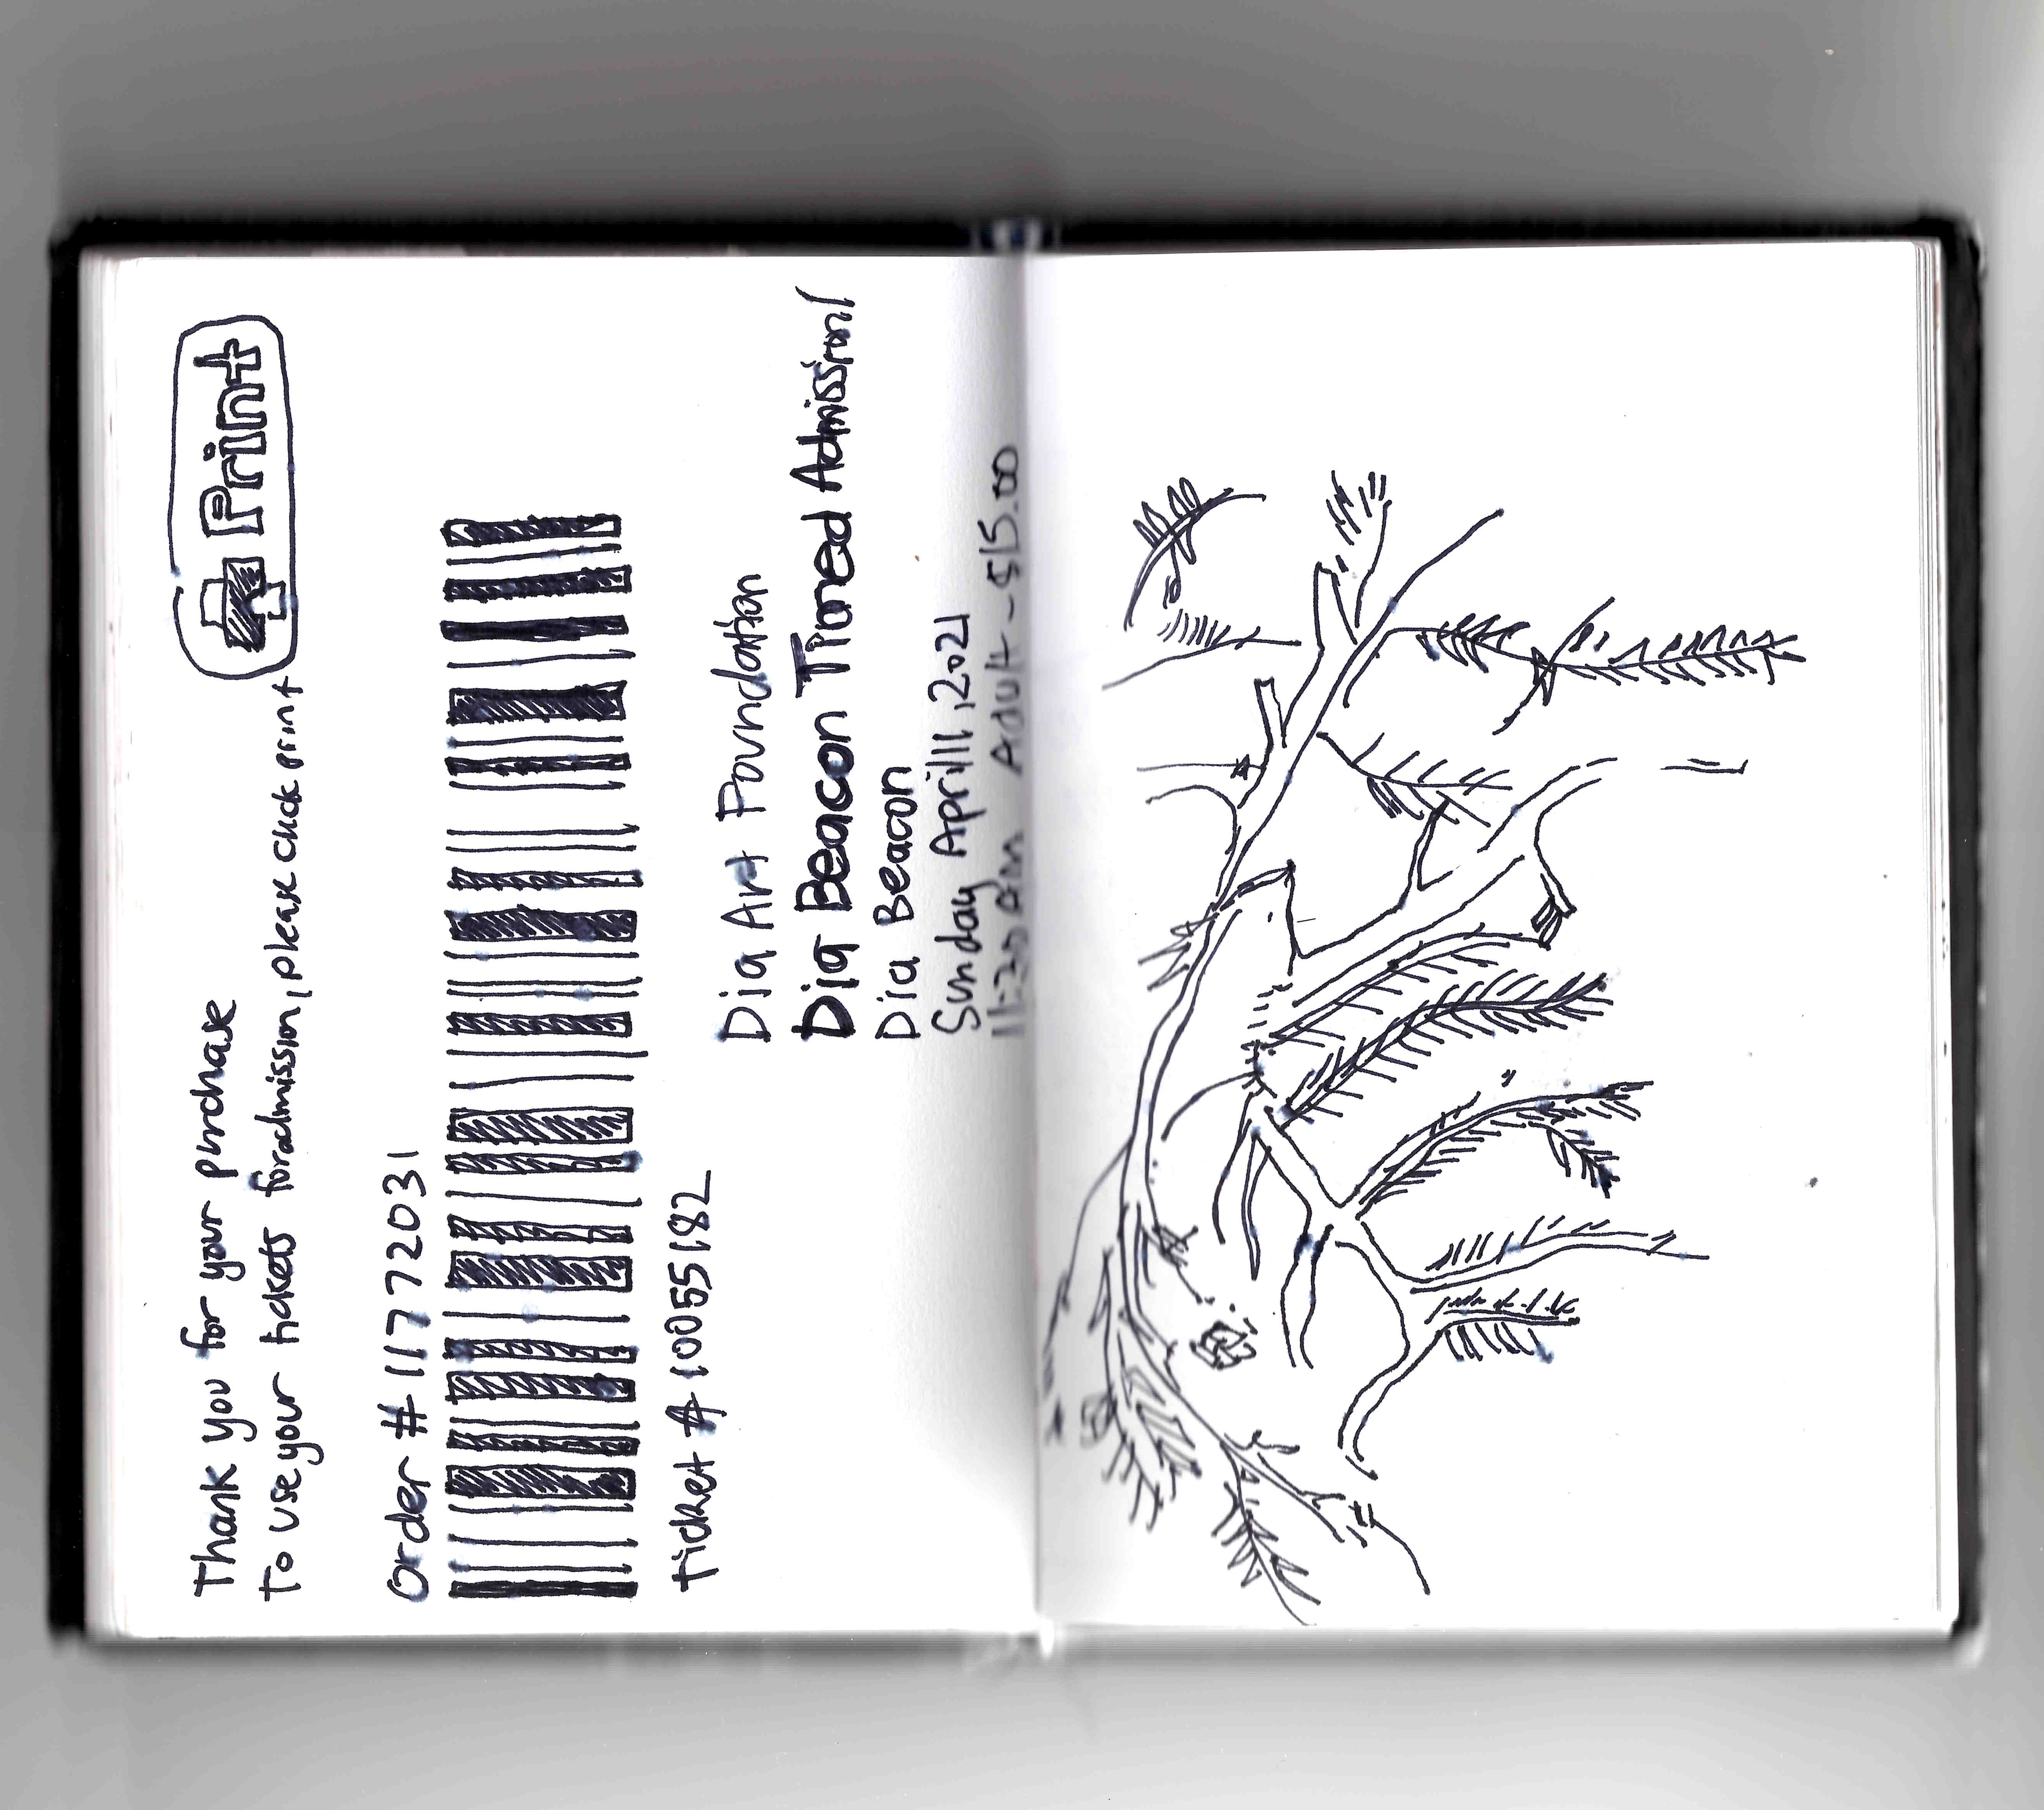 Print
Thank you for your purchase
To use your tickets for admission, please click print
Order # 11772031
Ticket # 10055182
Dia Art Foundation
Dia Beacon Timed Admission/
Dia Beacon
Sunday April 11, 2021
11:30 AM Adult - $15.00